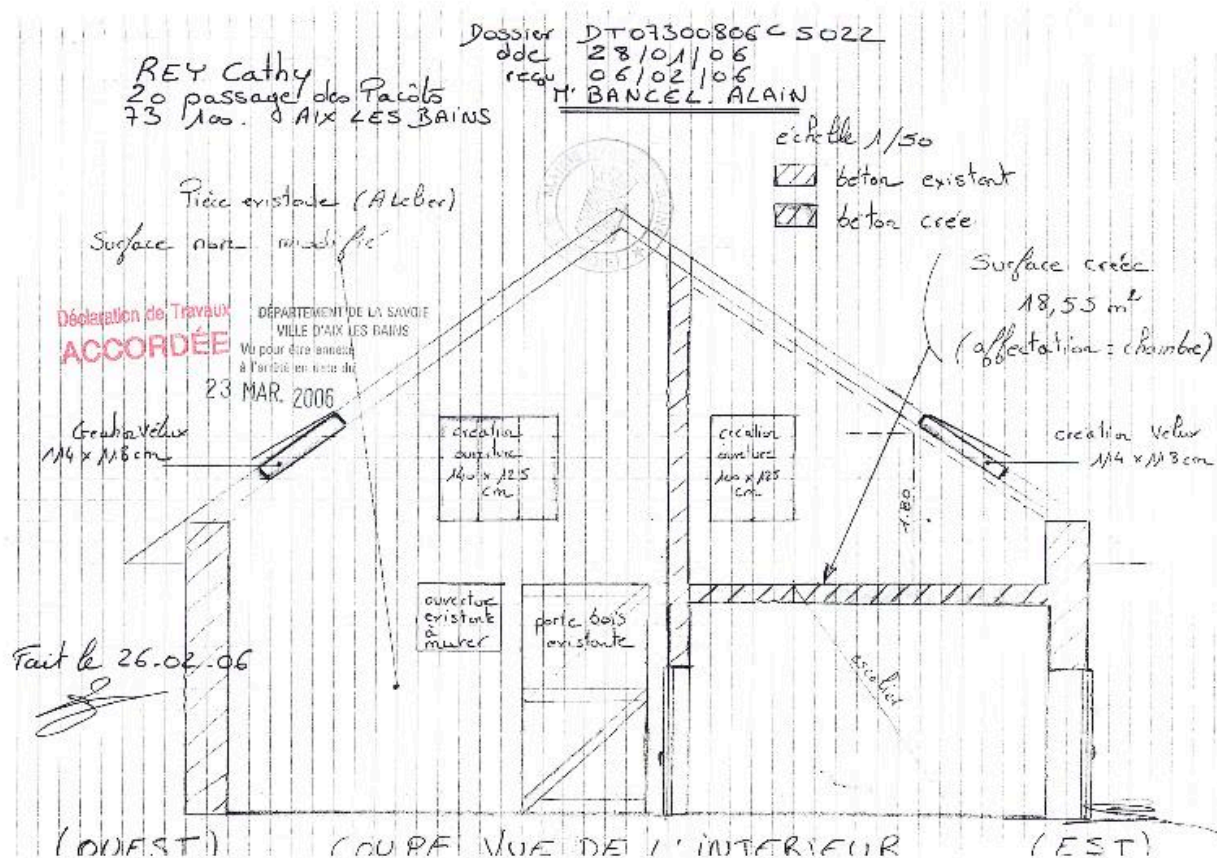 Dossier DT07300806C5022
ddc 28/01/06
reçu 06/02/06
Mr BANCEL. ALAIN
REY Cathy
20 passage des Pacôts
73 100. AIX LES BAINS
échelle 1/50
béton existant
béton crée
Pièce existante (Atelier)
Surface non modifié
Surface créée
18,55 m²
(affectation = chambre)
Déclaration de Travaux
ACCORDÉE
DÉPARTEMENT DE LA SAVOIE
VILLE D'AIX LES BAINS
Vu pour être annexé
à l'arrêté en date du
23 MAR. 2006
Création Vélux
114 x 118 cm
création
ouverture
140 x 125
cm
création
ouverture
100 x 125
cm
création Velux
114 x 118 cm
1.80
ouverture
existante
à
murer
porte bois
existante
escalier
Fait le 26.02.06
(OUEST) COUPE VUE DE L'INTERIEUR (EST)